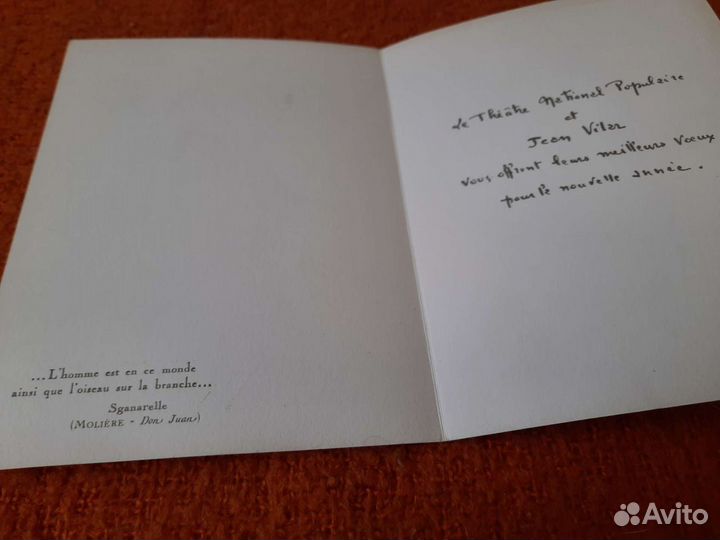 ...L'homme est en ce monde
ainsi que l'oiseau sur la branche...
Sganarelle
(MOLIÈRE - Don Juan)
Le Théâtre National Populaire
et
Jean Vilar
vous offrent leurs meilleurs vœux
pour la nouvelle année.
Avito